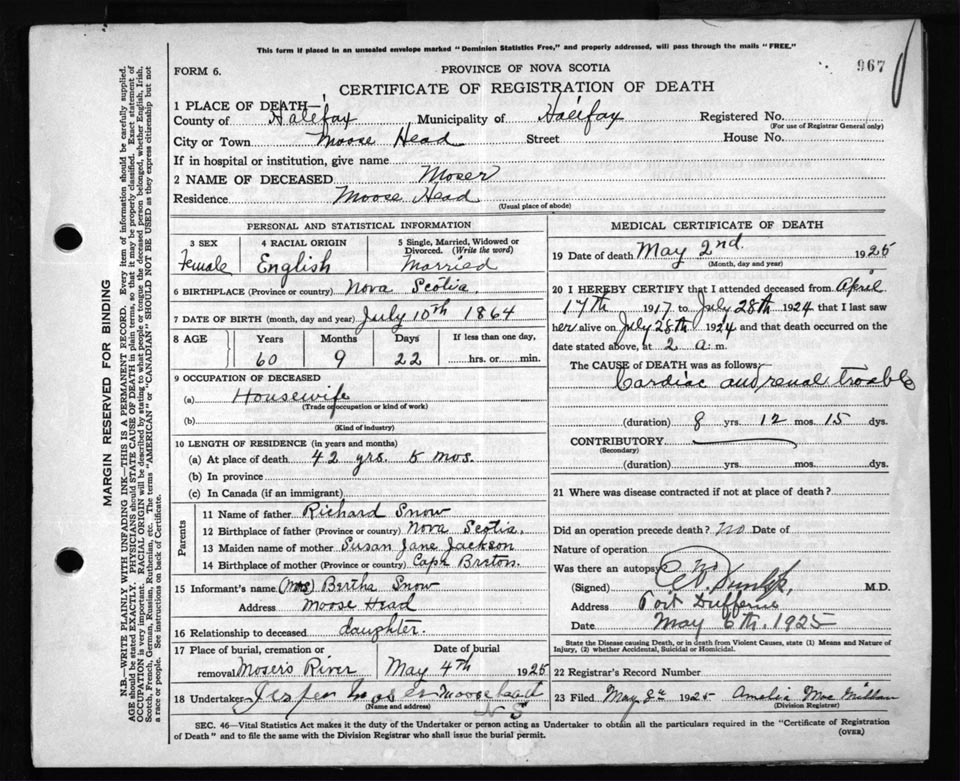 This form if placed in an unsealed envelope marked "Dominion Statistics Free," and properly addressed, will pass through the mails "FREE."
FORM 6.
PROVINCE OF NOVA SCOTIA
967
CERTIFICATE OF REGISTRATION OF DEATH
1 PLACE OF DEATH—
County of Halifax Municipality of Halifax Registered No.
(For use of Registrar General only)
City or Town Moose Head Street House No.
If in hospital or institution, give name
2 NAME OF DECEASED Moser
Residence Moose Head
(Usual place of abode)
PERSONAL AND STATISTICAL INFORMATION
3 SEX 4 RACIAL ORIGIN 5 Single, Married, Widowed or Divorced. (Write the word)
Female English Married
6 BIRTHPLACE (Province or country) Nova Scotia
7 DATE OF BIRTH (month, day and year) July 10th 1864
8 AGE Years Months Days If less than one day,
60 9 22 hrs. or min.
9 OCCUPATION OF DECEASED
(a) Housewife
(Trade or occupation or kind of work)
(b)
(Kind of industry)
10 LENGTH OF RESIDENCE (in years and months)
(a) At place of death 42 yrs. 5 mos.
(b) In province
(c) In Canada (if an immigrant)
Parents
11 Name of father Richard Snow
12 Birthplace of father (Province or country) Nova Scotia
13 Maiden name of mother Susan Jane Jackson
14 Birthplace of mother (Province or country) Cape Breton
15 Informant's name (Mrs) Bertha Snow
Address Moose Head
16 Relationship to deceased daughter.
17 Place of burial, cremation or Date of burial
removal Mosers River May 4th 1925
18 Undertaker Moosehead
(Name and address) N S
MEDICAL CERTIFICATE OF DEATH
19 Date of death May 2nd. 1925
(Month, day and year)
20 I HEREBY CERTIFY that I attended deceased from April
17th 1917 to July 28th 1924 that I last saw
her alive on July 28th 1924 and that death occurred on the
date stated above, at 2 a. m.
The CAUSE OF DEATH was as follows:
Cardiac and renal trouble
(duration) 8 yrs. 12 mos. 15 dys.
CONTRIBUTORY
(Secondary)
(duration) yrs. mos. dys.
21 Where was disease contracted if not at place of death?
Did an operation precede death? No Date of
Nature of operation
Was there an autopsy No
(Signed) Dunlop, M.D.
Address Port Dufferin
Date May 6th. 1925
State the Disease causing Death, or in death from Violent Causes, state (1) Means and Nature of
Injury, (2) whether Accidental, Suicidal or Homicidal.
22 Registrar's Record Number
23 Filed May 8th 1925 Amelia
(Division Registrar)
SEC. 46—Vital Statistics Act makes it the duty of the Undertaker or person acting as Undertaker to obtain all the particulars required in the "Certificate of Registration
of Death" and to file the same with the Division Registrar who shall issue the burial permit.
(OVER)
MARGIN RESERVED FOR BINDING
N.B.—WRITE PLAINLY WITH UNFADING INK—THIS IS A PERMANENT RECORD. Every item of information should be carefully supplied.
AGE should be stated EXACTLY. PHYSICIANS should STATE CAUSE OF DEATH in plain terms, so that it may be properly classified. Exact statement of
OCCUPATION is very important. RACIAL ORIGIN will be described by stating to what people or tongue the deceased person belonged, whether English, Irish,
Scotch, French, German, Russian, Ruthenian, etc. The terms "AMERICAN" or "CANADIAN" SHOULD NOT BE USED as they express citizenship but not
a race or people. See instructions on back of Certificate.